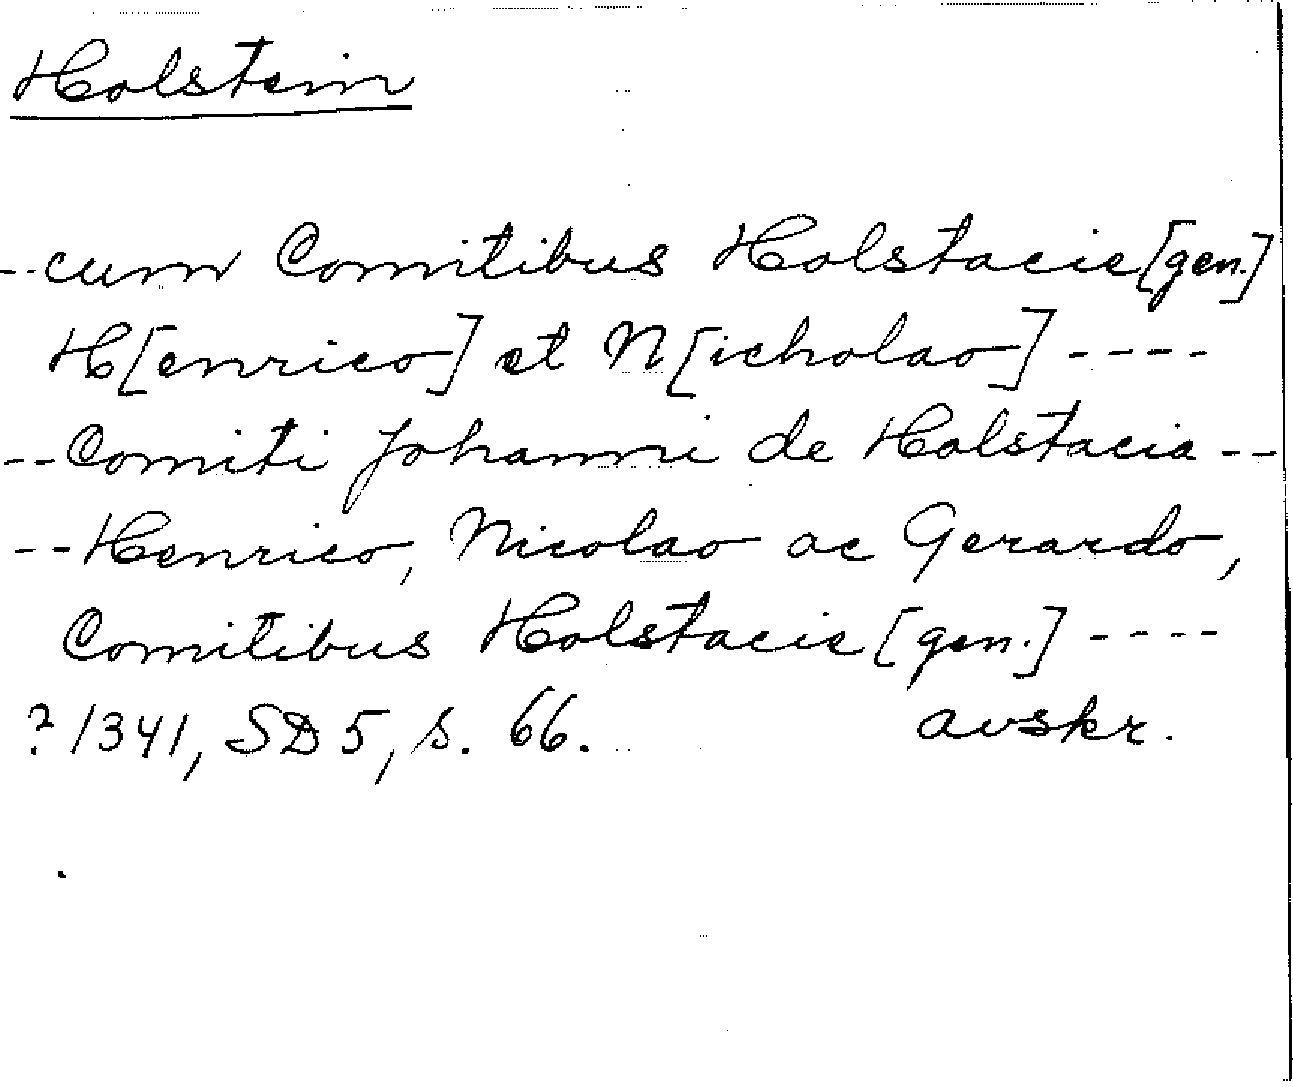 Holstein
--cum Comitibus Holstacie [gen.]
H[enrico] et N[icholao] ----
--Comiti Johanni de Holstacia --
--Henrico, Nicolao ac Gerardo,
Comitibus Holstacie [gen.] ----
? 1341, SD 5, s. 66. avskr.